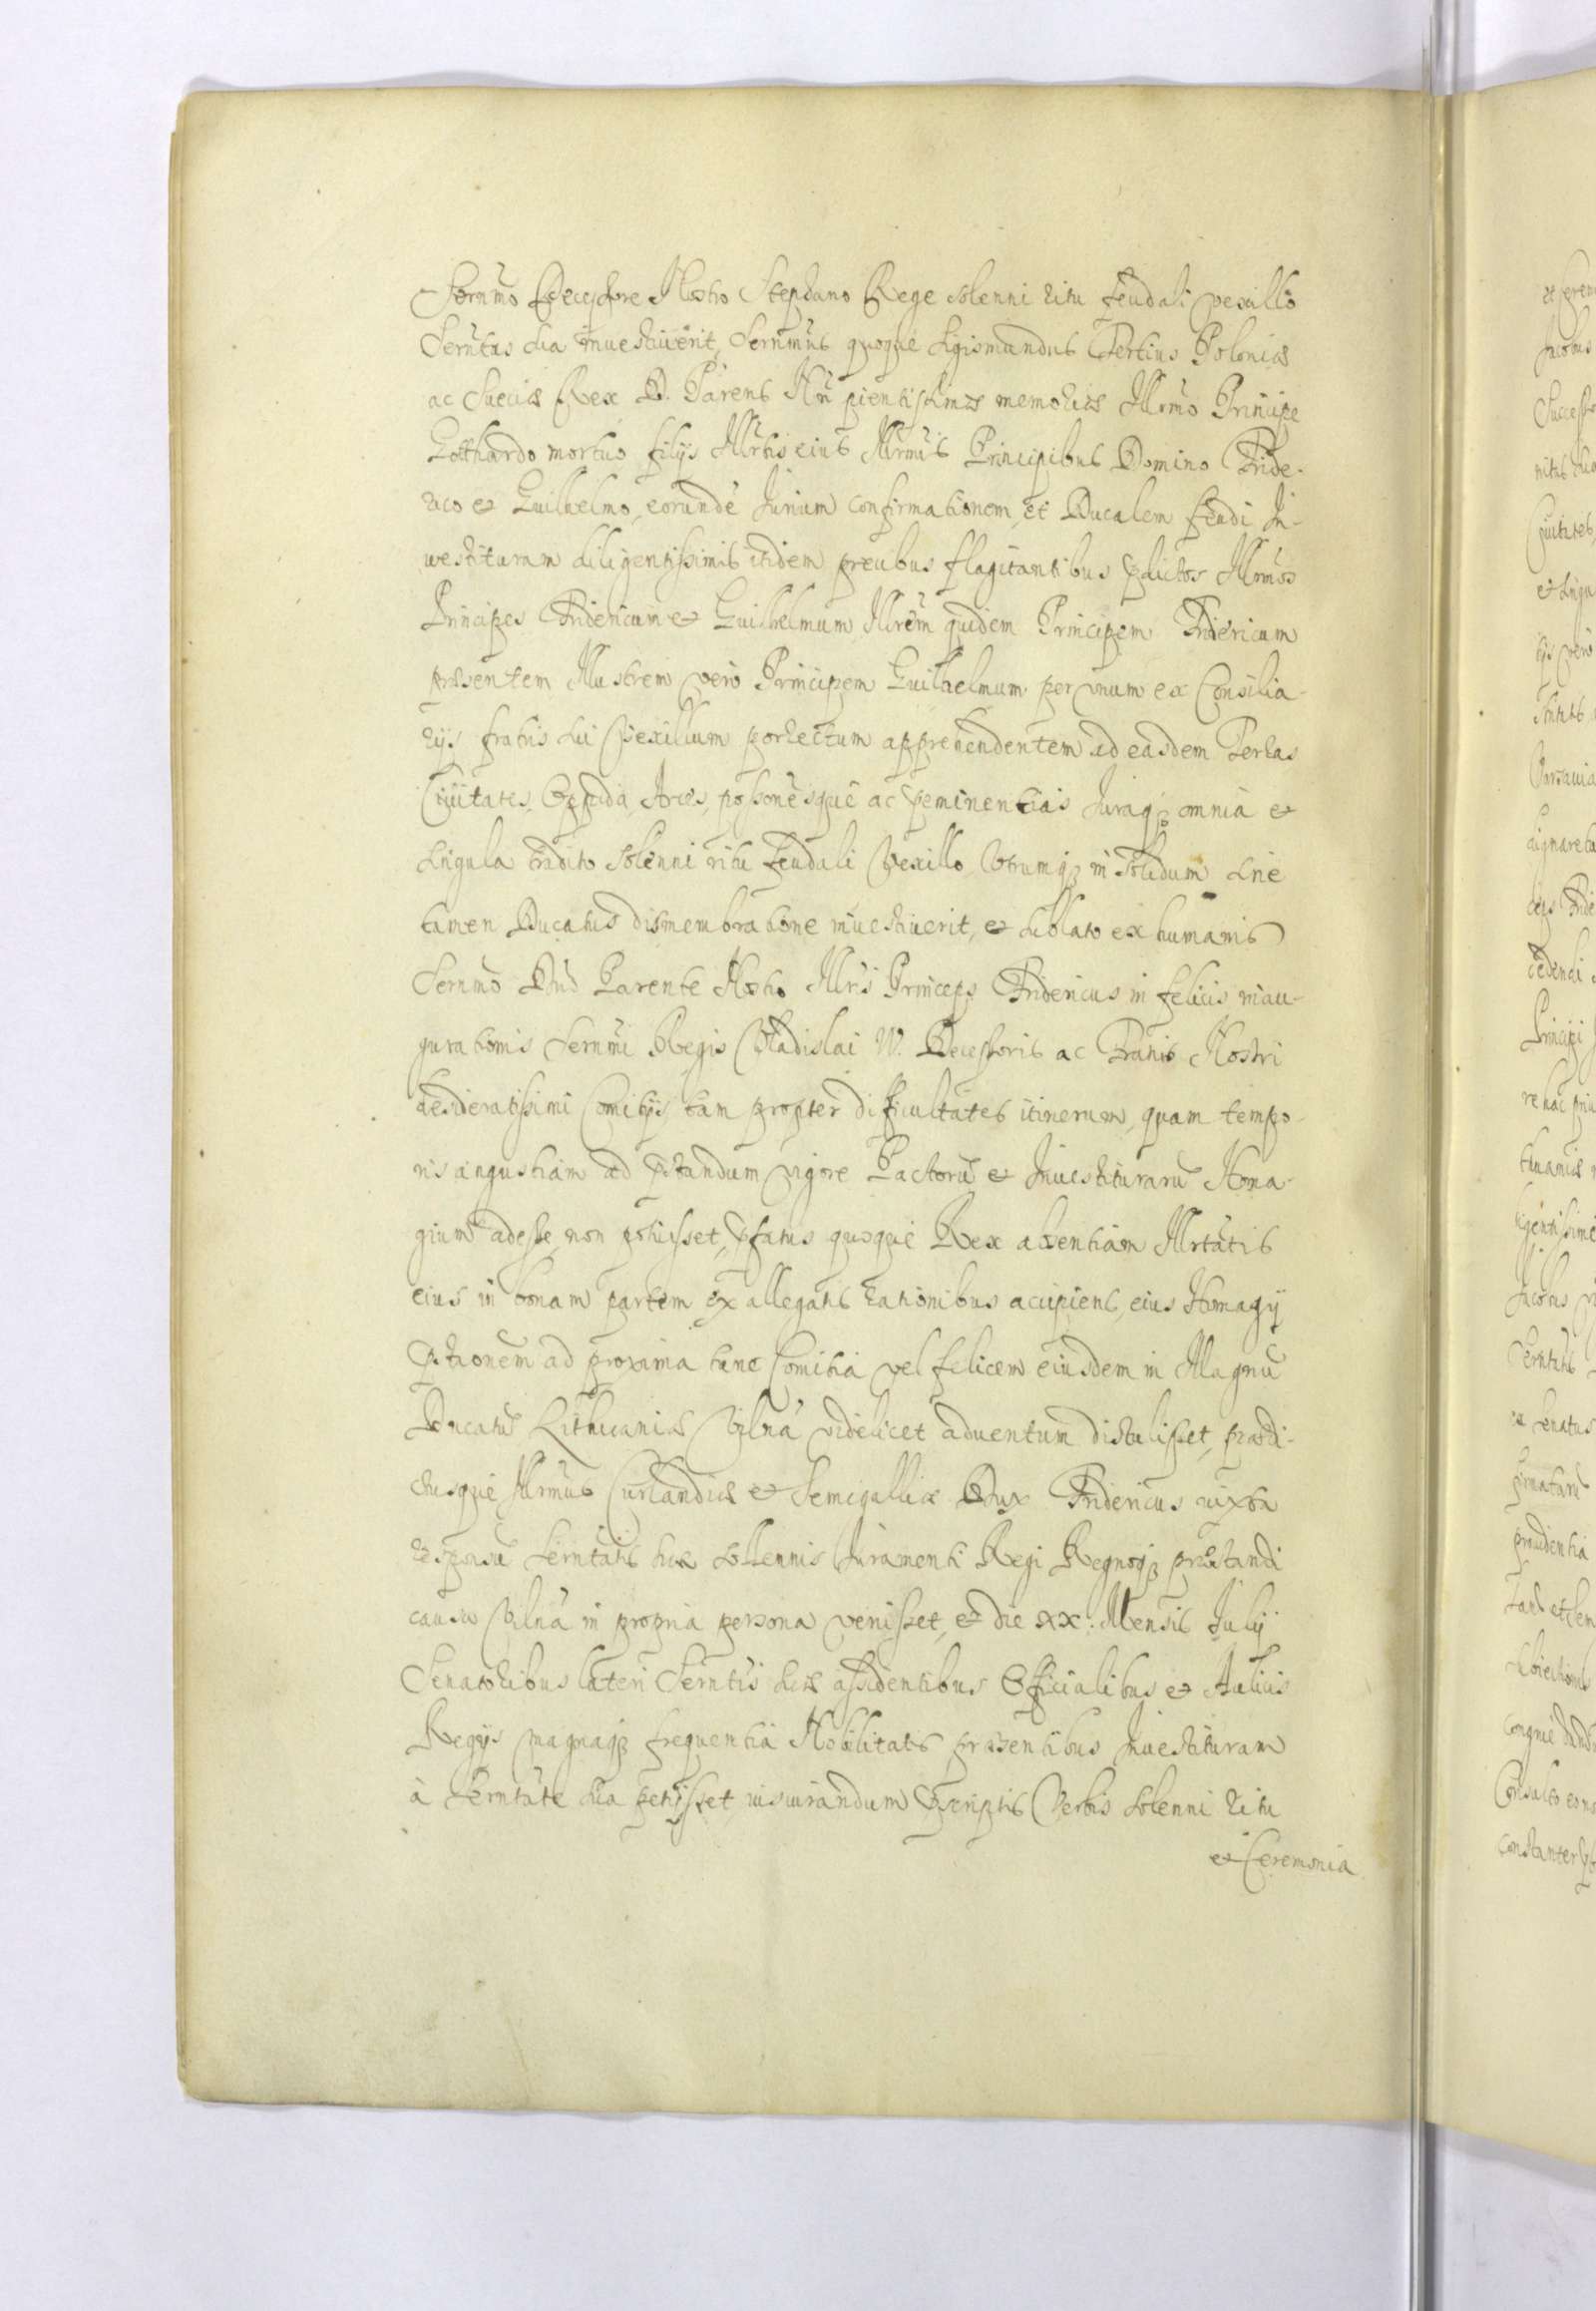 Sernmo Decessore Nostro Stephano Rege solenni ritu feudali vexillo
Serntas sua investiverit, Sernmus quoque Sigismundus Tertius Poloniæ
ac Sueciæ Rex D. Parens Nr pientissimæ memoriæ Illrmo Principe
Gotthardo mortuo filijs Illrtis eius Illrmis Principibus Domino Fride-
rico et Guilhelmo, eorundē Jurium confirmationem, et Ducalem feudi In-
vestituram diligentissimis itidem precibus flagitantibus pdictos Illrmos
Principes Fridericum et Guilhelmum Illrem quidem Principem Fridericum
præsentem Illustrem vero Principem Guilhelmum per unum ex Consilia-
rijs fratris sui Vexillum porrectum apprehendentem ad easdem Terras
Civitates, Oppida, Arces, possonesque ac peminentias Juraqz omnia et
singula tradito solenni ritu feudali Vexillo, Utrumqz in solidum sine
tamen Ducatus dismembratione investiverit, et sublato ex humanis
Sernmo Dno Parente Nostro Illris Princeps Fridericus in felicis inau-
gurationis Sernmi Regis Vladislai IV. Decessoris ac Fratris Nostri
desideratissimi Comitijs, tam propter difficultates itinerum, quam tempo-
ris angustiam ad pstandum vigore Pactorū et Investiturarū Homa-
gium adesse non potuisset, pfatus quoque Rex absentiam Illrtatis
eius in bonam partem ex allegatis rationibus accipiens, eius Homagij
pstaonem ad proxima tunc Comitia vel felicem eiusdem in Magnū
Ducatū Lithuaniæ Vilnā videlicet adventum distulisset, prædi-
ctusque Illrmus Curlandiæ et Semigalliæ Dux Fridericus iuxta
responsū Serntatis suæ solennis Juramenti Regi Regnoqz præstandi
causa Vilnā in propria persona venisset, et die XX. Mensis Julij
Senatoribus lateri Serntis suæ assidentibus Officialibus et Aulicis
Regijs magnaqz frequentia Nobilitatis præsentibus Investituram
à Serntate sua petijsset, iusiurandum pscriptis Verbis solenni ritu
et Ceremonia